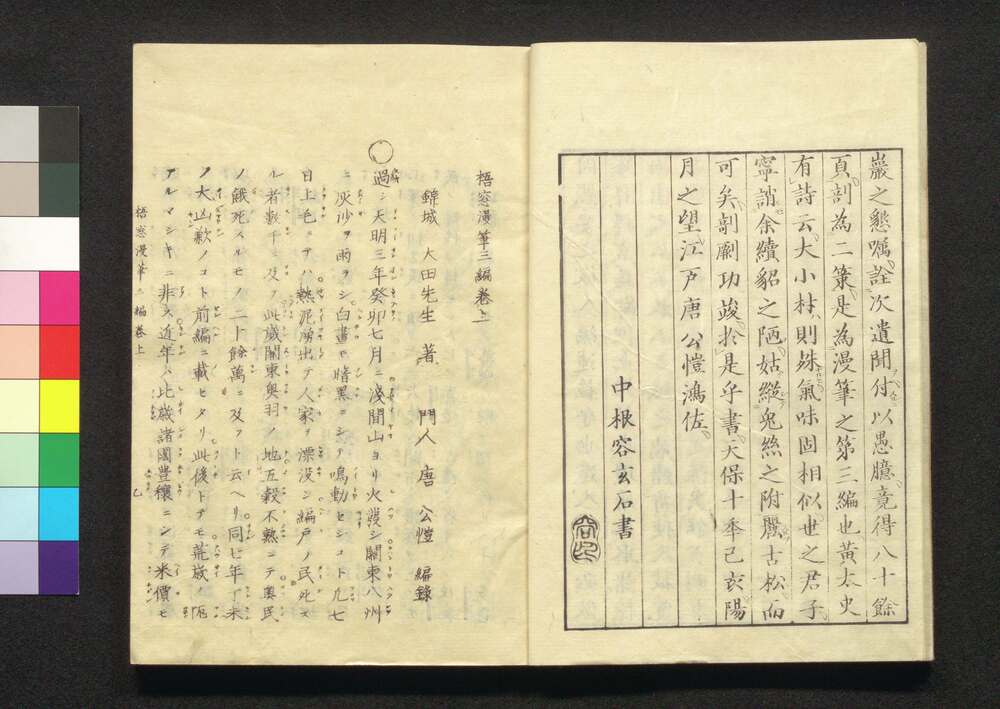 巖之懇嘱詮次遺聞付以愚臆竟得八十餘
頁刻為二策是為漫筆之第三編也黄太史
有詩云大小材則殊氣味固相似世之君子
寧誚余續貂之陋姑縦兔絲之附厥古松而
可矣剞劂功竣於是乎書天保十年己亥陽
月之望江戸唐公愷鴻佐
中根容玄石書
梧窓漫筆三編巻上
錦城 大田先生 著 門人 唐 公愷 編錄
過シ天明三年癸卯七月ニ淺間山ヨリ火發シ關東八州
ニ灰沙ヲ雨ラシ白晝モ暗黒ニシテ鳴動セシコト凡七
日上毛ニテハ熱泥湧出テ人家ヲ漂没シ編戸ノ民死ス
ル者數千ニ及フ此歳關東奥羽ノ地五穀不熟ニテ奥民
ノ餓死スルモノ二十餘萬ニ及フト云ヘリ同七年丁未
ノ大凶歉ノコト前編ニ載セタリ此後トテモ荒歳ノ厄
アルマシキニ非ス近年ハ比歳諸國豊穰ニシテ米價モ
梧窓漫筆三編巻上
乙